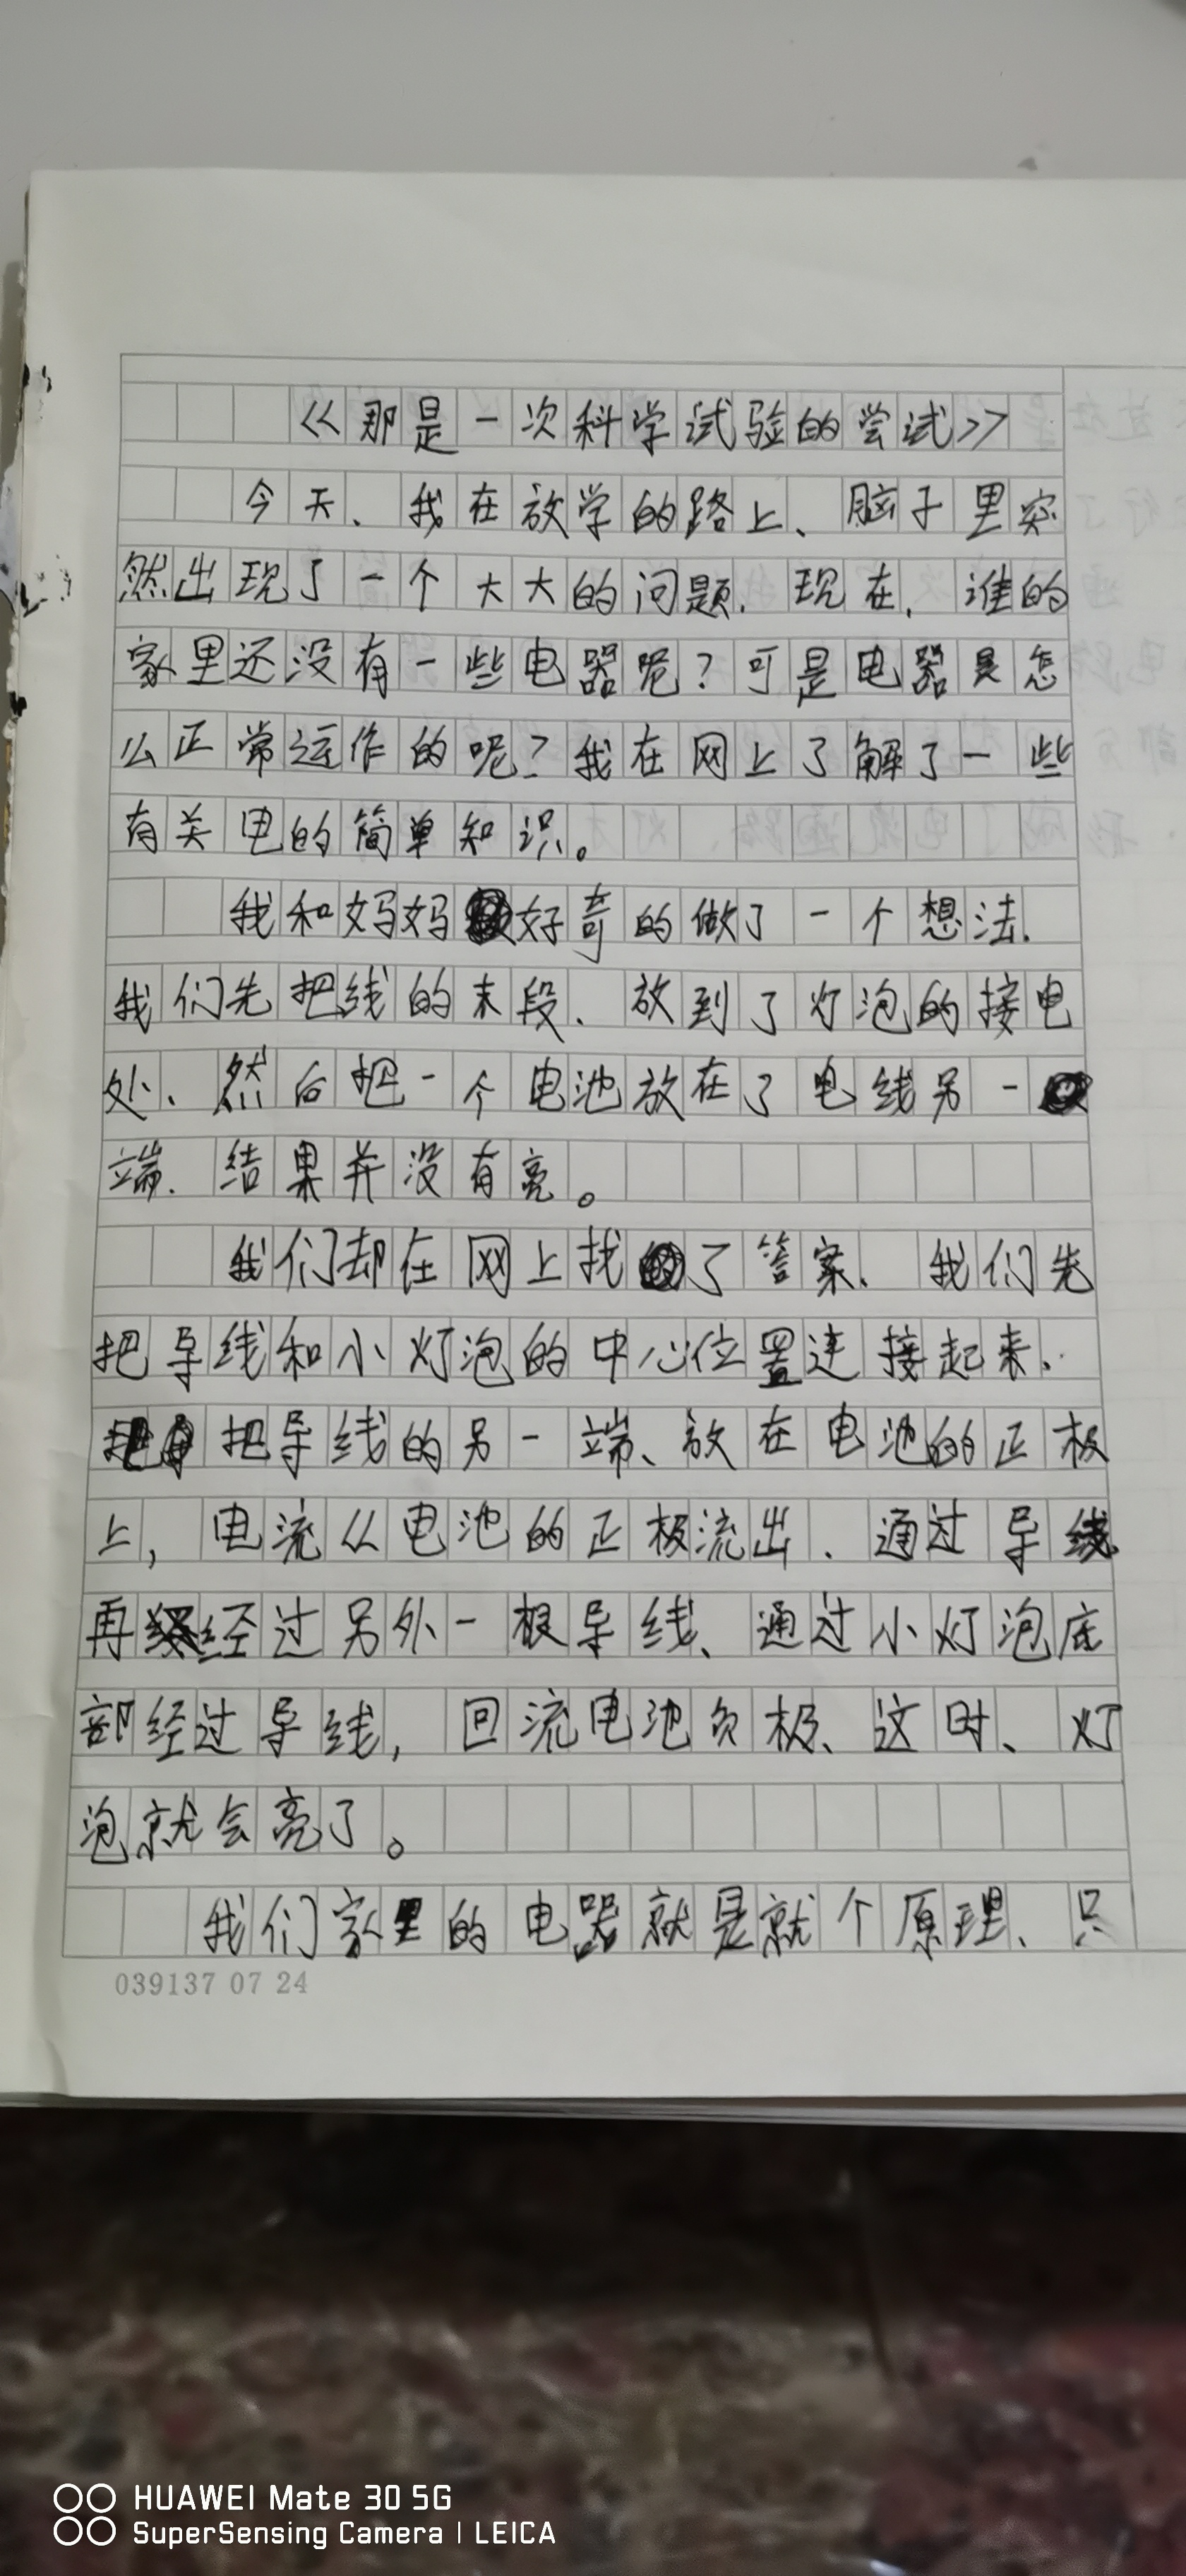 《那是一次科学试验的尝试》
今天、我在放学的路上、脑子里突
然出现了一个大大的问题.现在,谁的
家里还没有一些电器呢?可是电器是怎
么正常运作的呢?我在网上了解了一些
有关电的简单知识。
我和妈妈好奇的做了一个想法.
我们先把线的末段、放到了灯泡的接电
处、然后把一个电池放在了电线另一
端.结果并没有亮。
我们却在网上找了答案.我们先
把导线和小灯泡的中心位置连接起来.
把导线的另一端、放在电池的正极
上,电流从电池的正极流出.通过导线
再经过另外一根导线、通过小灯泡底
部经过导线,回流电池负极、这时、灯
泡就会亮了。
我们家里的电器就是就个原理、只
039137 07 24
HUAWEI Mate 30 5G
SuperSensing Camera | LEICA